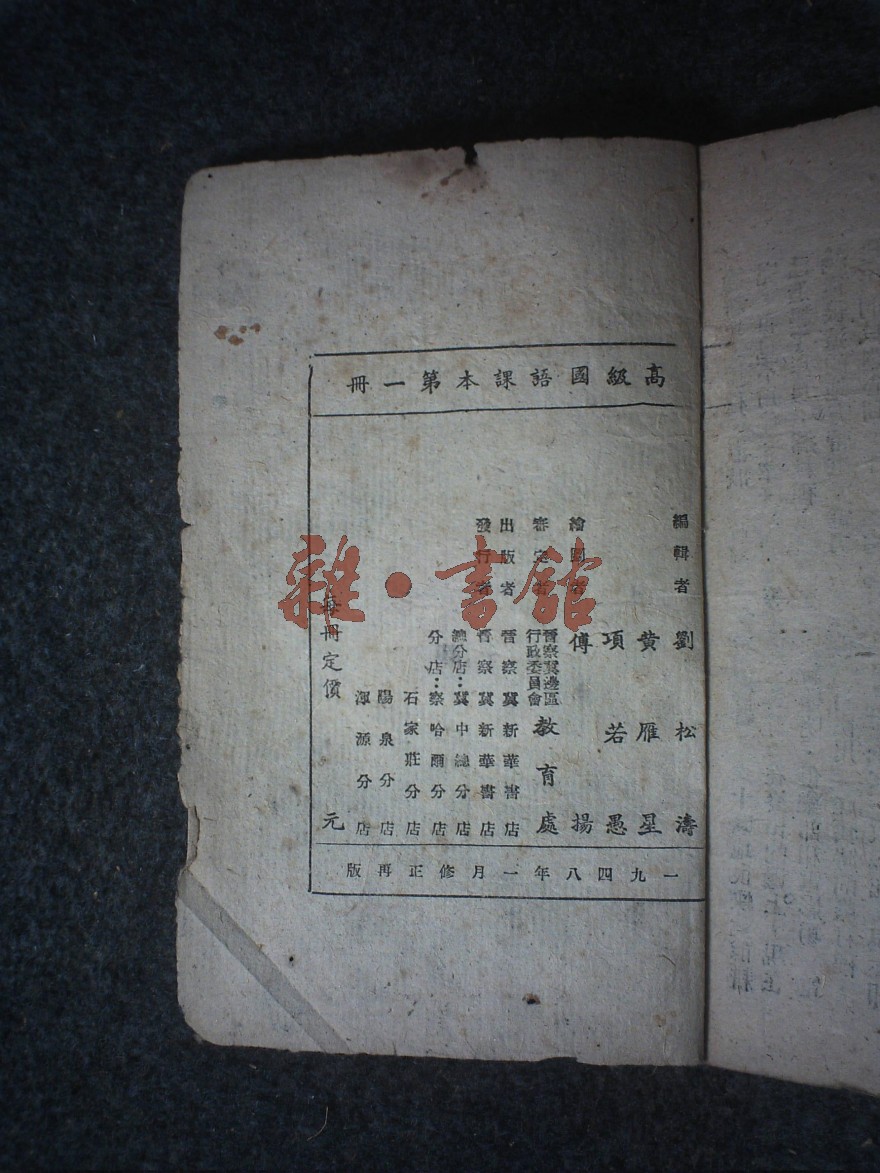 高級國語課本第一冊
編輯者 劉松濤
黄雁星
項若愚
繪圖者 傅揚
審定者 晉察冀邊區行政委員會教育處
出版者 晉察冀新華書店
發行者 晉察冀新華書店
總分店：冀中總分店
分店：察哈爾分店
石家莊分店
陽泉分店
渾源分店
每冊定價 元
一九四八年一月修正再版
雜·書館